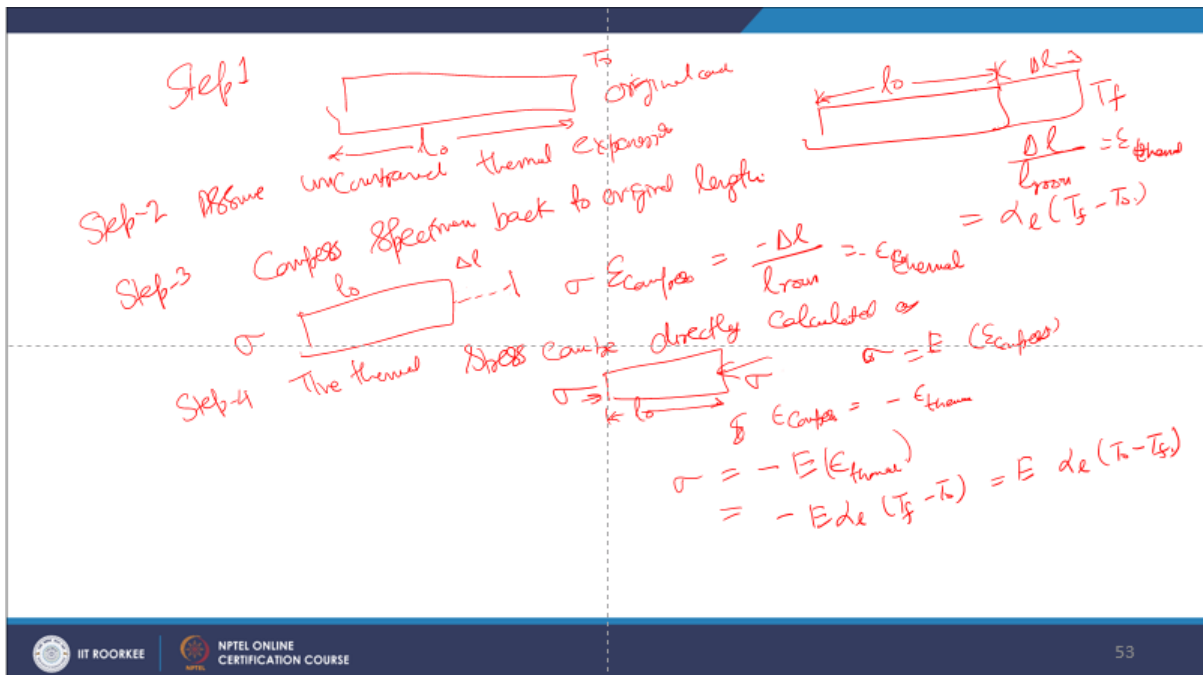 Step 1
T₀
original case
l₀
l₀
Δl
T_f
Δl / l_room = ε_thermal
= α_l (T_f - T₀)
Step-2 Assume unconstrained thermal expansion
Step-3 Compress Specimen back to original length.
σ
l₀
Δl
σ ε_compress = -Δl / l_room = - ε_thermal
Step-4 The thermal stress can be directly calculated as
σ = E (ε_compress)
σ
l₀
σ
ε_compress = - ε_thermal
σ = - E (ε_thermal)
= - E α_l (T_f - T₀) = E α_l (T₀ - T_f)
IIT ROORKEE
NPTEL
NPTEL ONLINE
CERTIFICATION COURSE
53